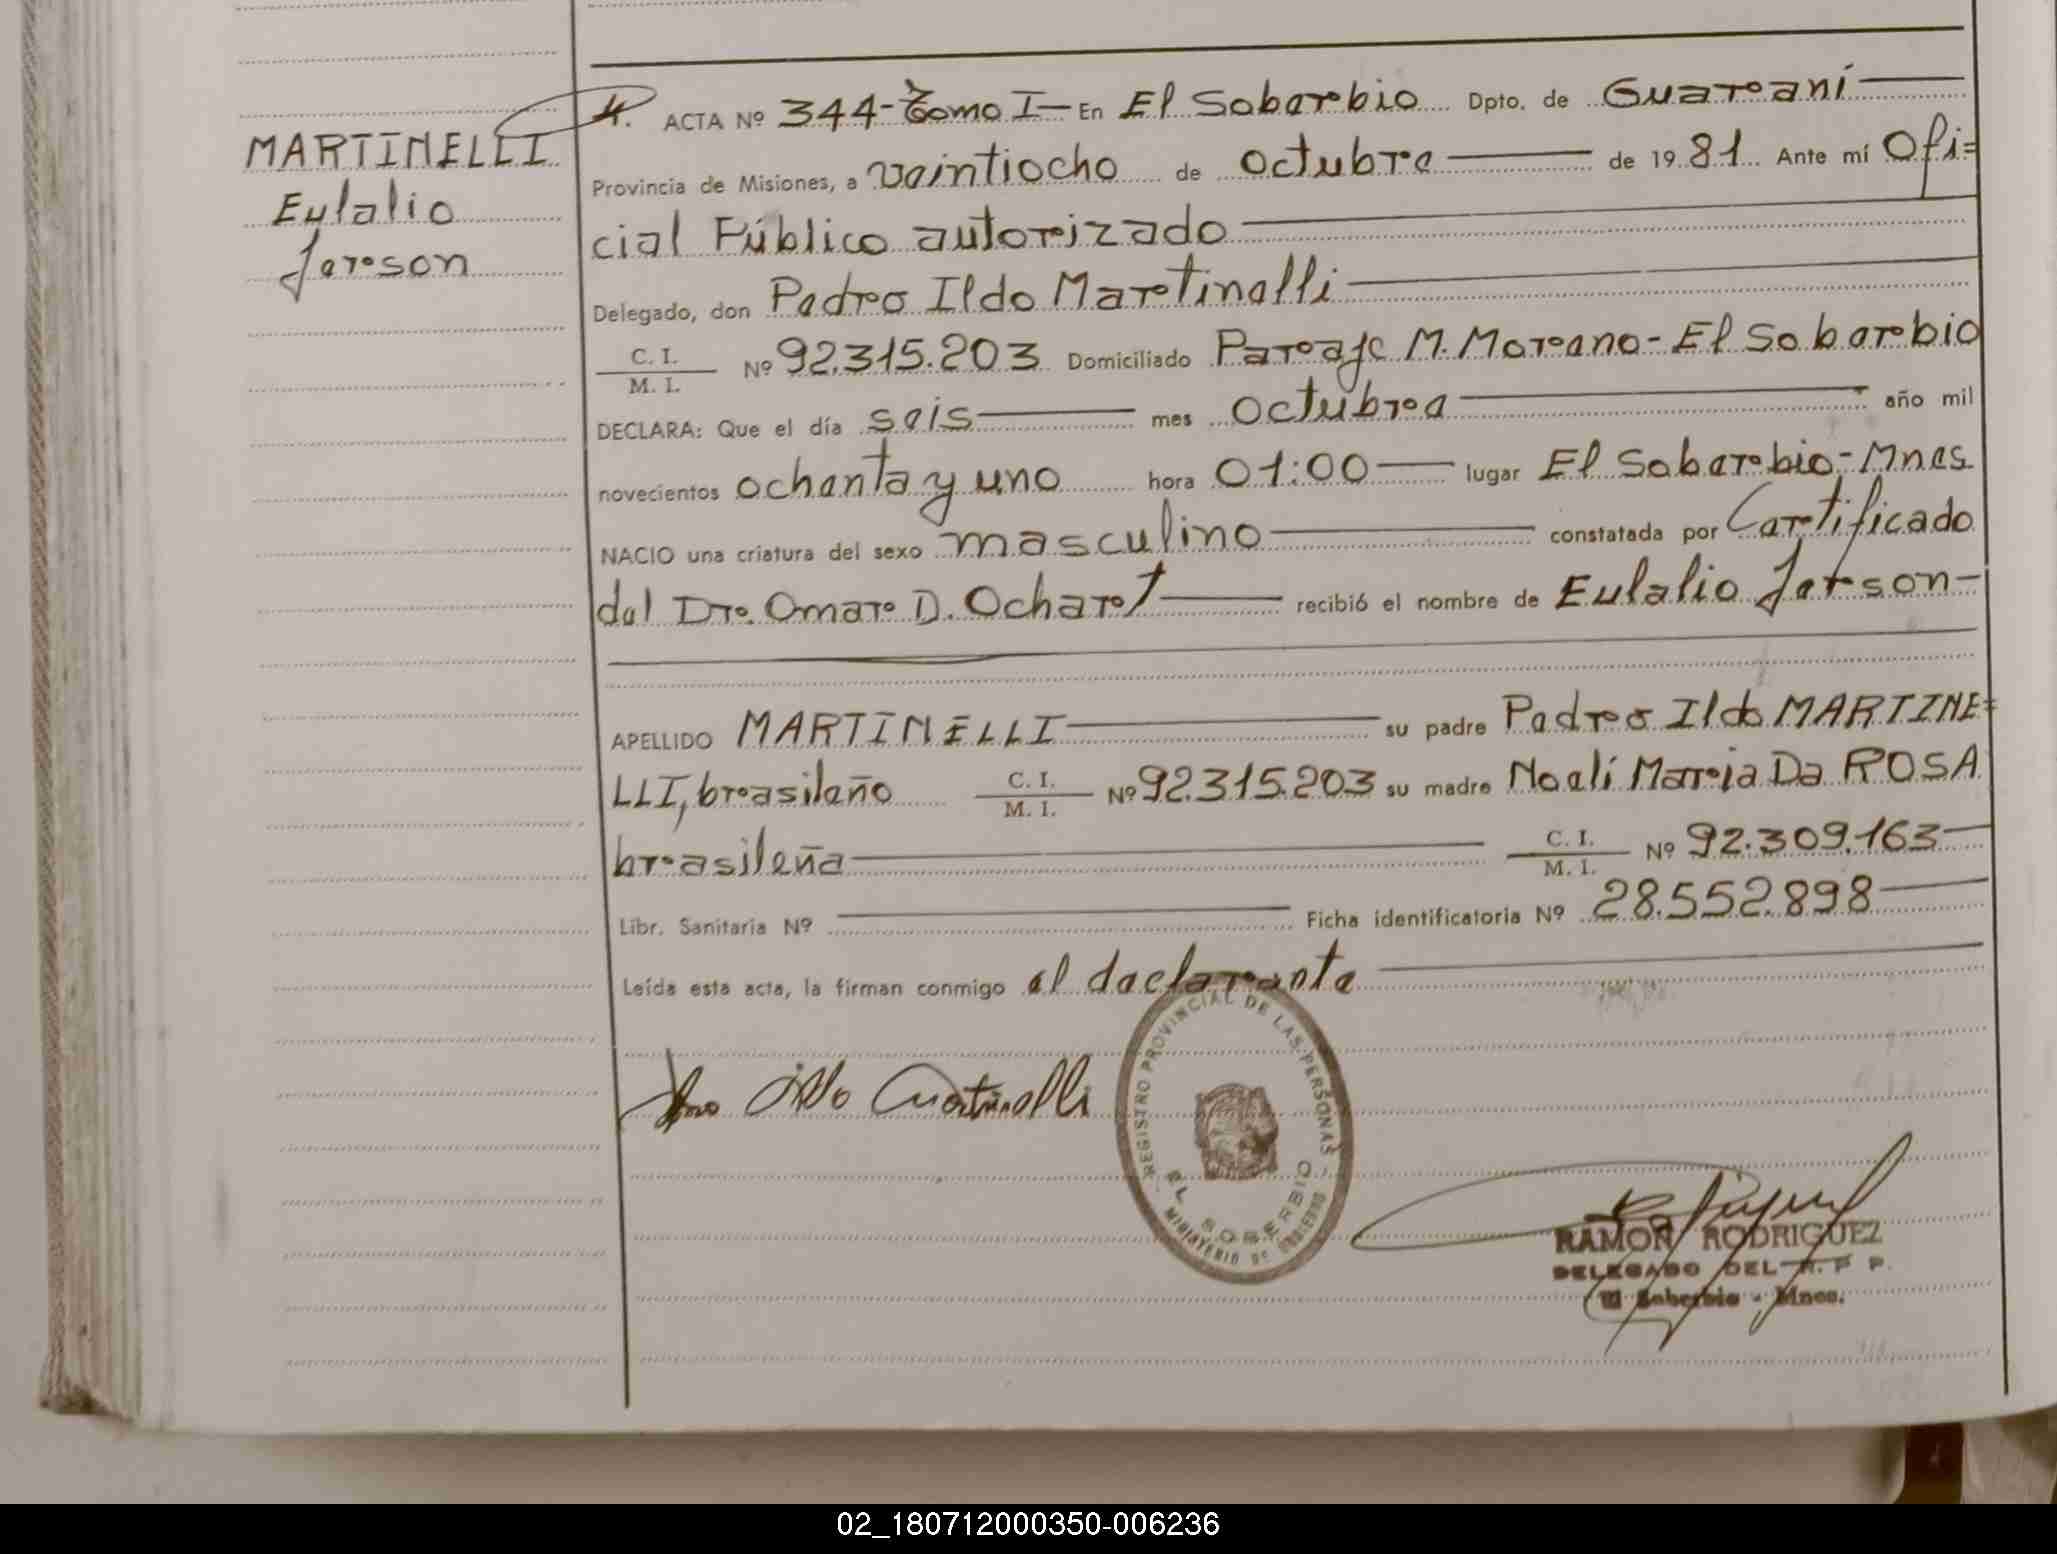 MARTINELLI
Eulalio
Jerson
4. ACTA Nº 344-Tomo I- En El Soberbio Dpto. de Guaraní
Provincia de Misiones, a veintiocho de octubre de 1981 Ante mí Ofi=
cial Público autorizado
Delegado, don Pedro Ildo Martinelli
C. I.
M. I. Nº 92.315.203 Domiciliado Paraje M. Moreno-El Soberbio
DECLARA: Que el día seis mes octubre año mil
novecientos ochenta y uno hora 01:00 lugar El Soberbio-Mnes.
NACIO una criatura del sexo masculino constatada por Certificado
del Dr. Omar D. Ochart recibió el nombre de Eulalio Jerson-
APELLIDO MARTINELLI su padre Pedro Ildo MARTINE=
LLI, brasileño C. I. M. I. Nº 92.315.203 su madre Noelí Maria Da ROSA
brasileña C. I. M. I. Nº 92.309.163
Libr. Sanitaria Nº Ficha identificatoria Nº 28.552.898
Leída esta acta, la firman conmigo el declarante
REGISTRO PROVINCIAL DE LAS PERSONAS
EL SOBERBIO
MINISTERIO DE GOBIERNO
Ildo Martinelli
RAMON RODRIGUEZ
DELEGADO DEL R. P P.
El Soberbio - Mnes.
02_180712000350-006236